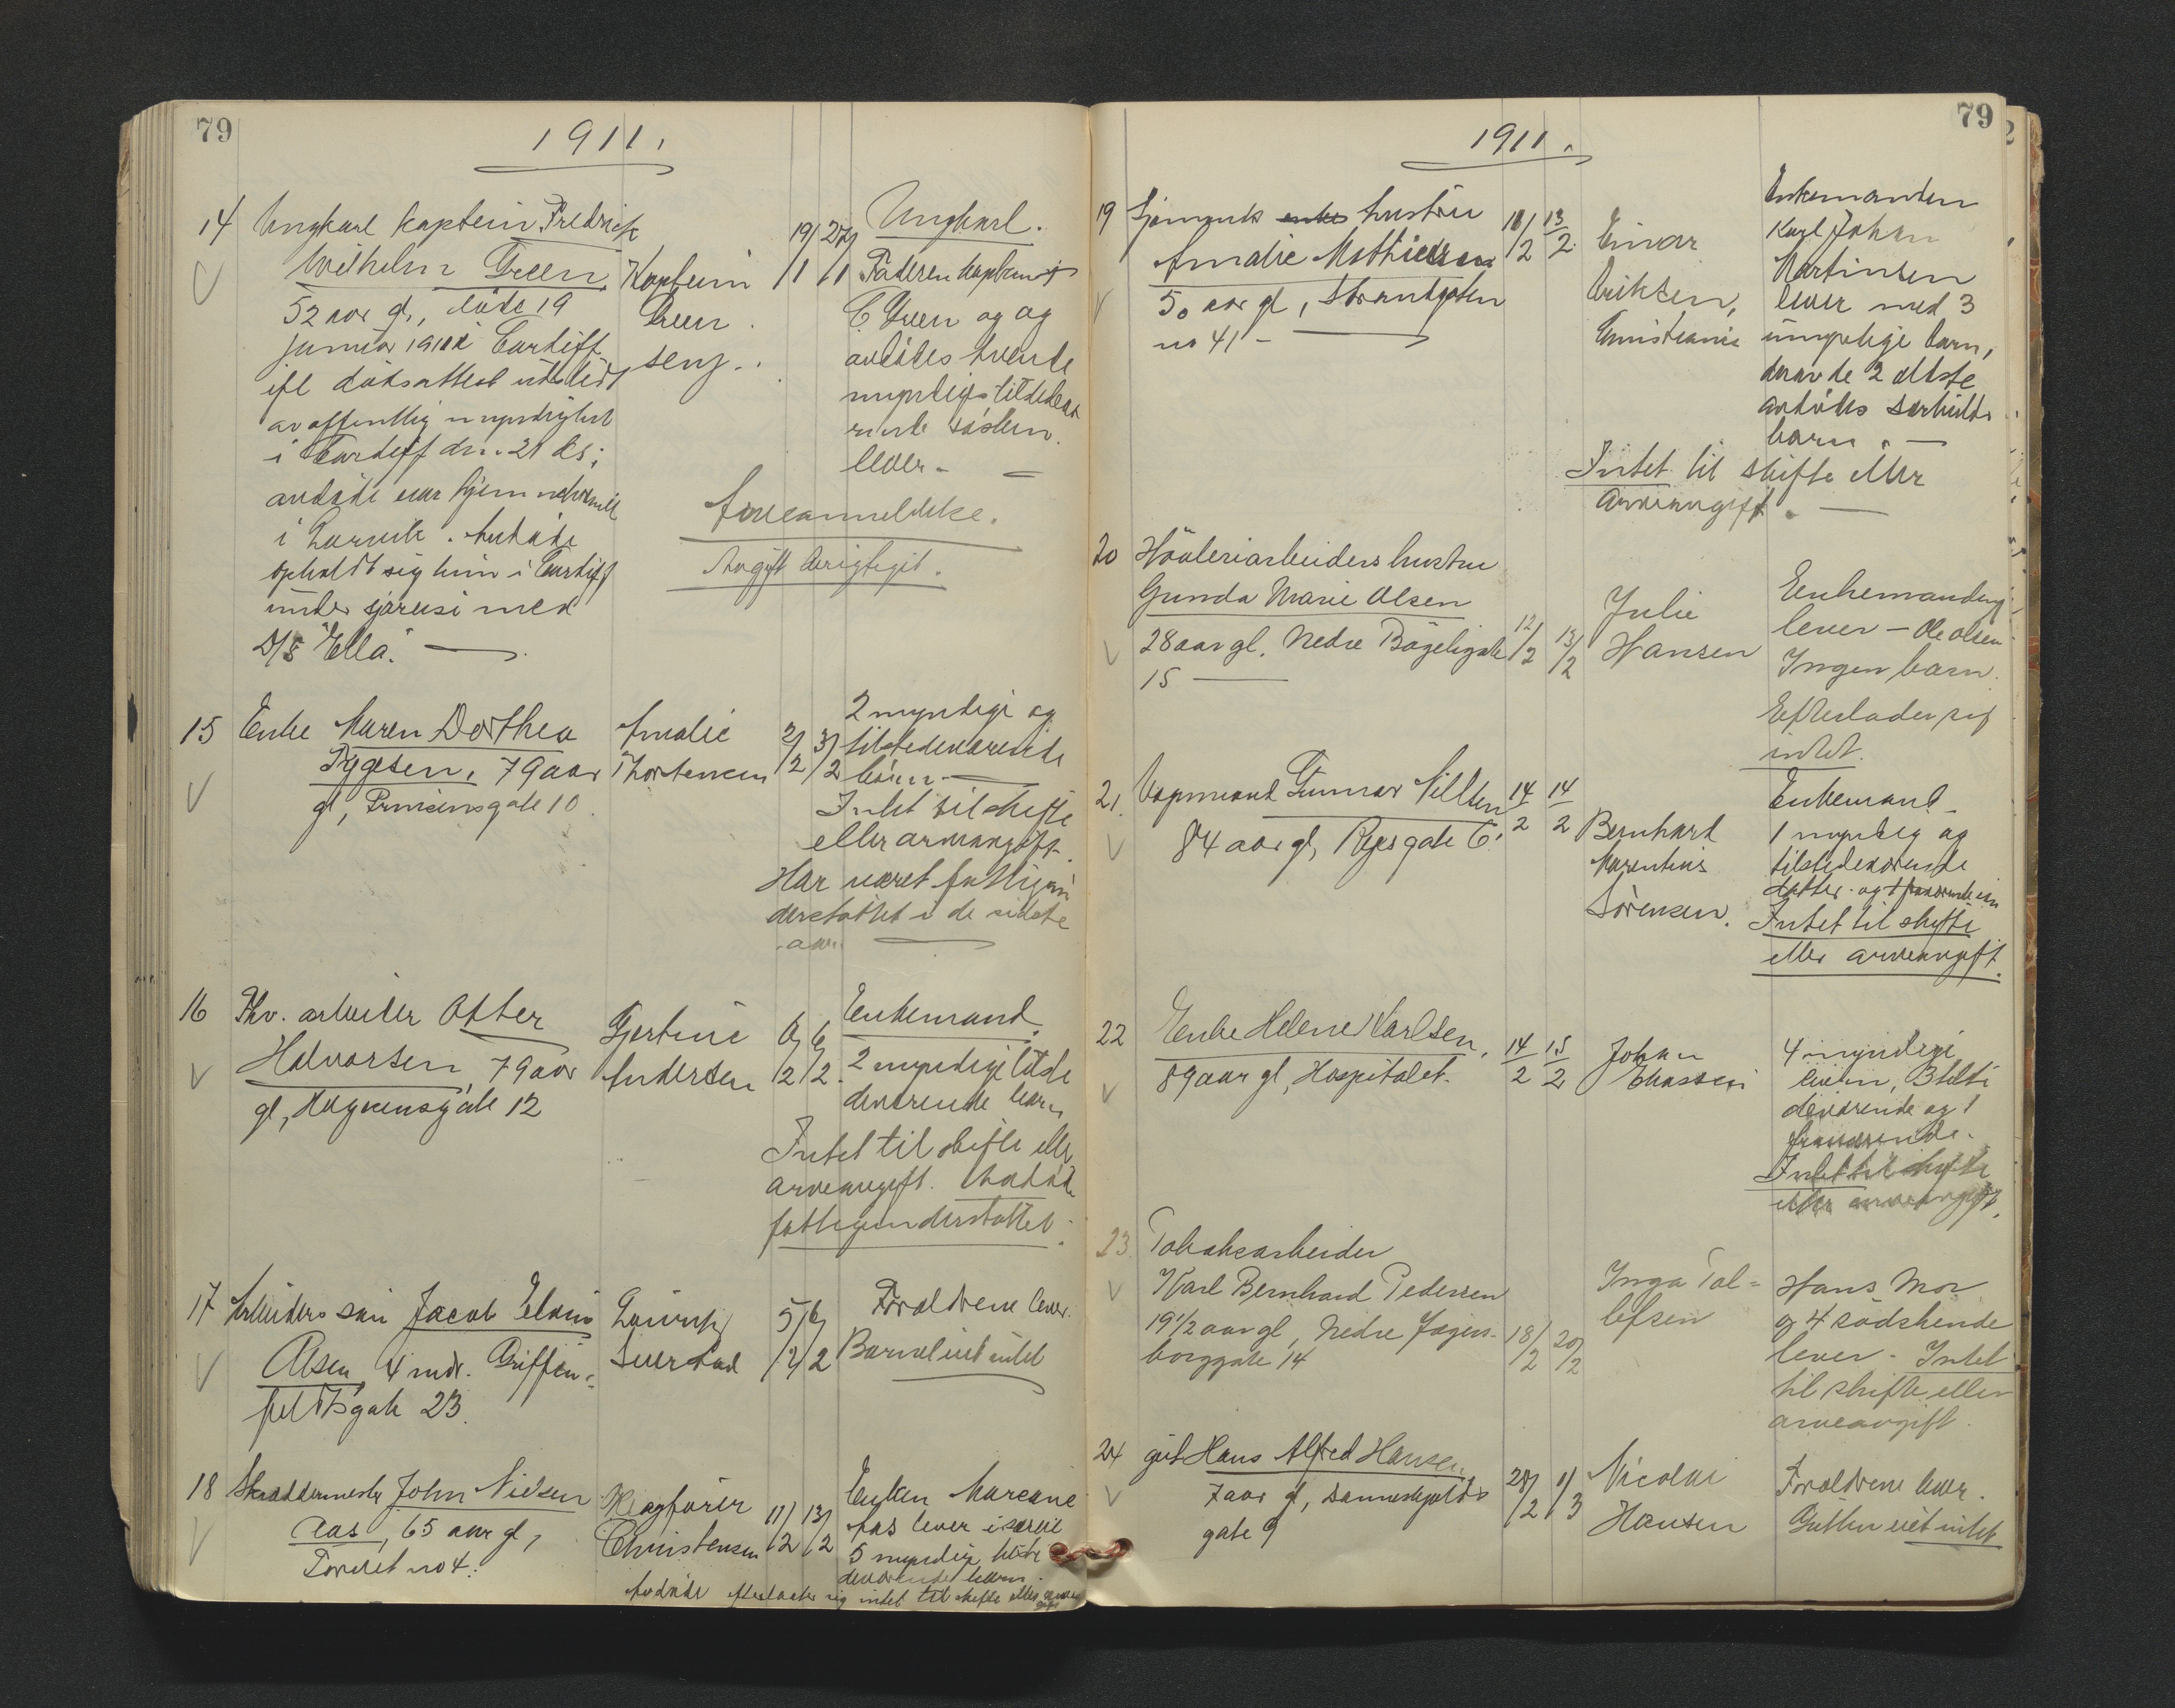 79
1911.
14 Ungkarl kaptein Fredrick
Wilhelm Green,
52 aar gl., døde 19
januar 1911 i Cardiff
ifl dødsattest utstedt
av offentlig myndighet
i Cardiff den 21 ds;
avdøde var hjemmehørende
i Larvik. Avdøde
opholdt sig kun i Cardiff
under sjøreise med
D/S "Ella".
Kaptein
Green
senj.
19/1 27/1
Ungkarl.
Faderen kaptein
C. Green og og
avdødes
myndige tilstedeværende
søsken
lever.
Arveanmeldelse.
Avgift berigtiget.
15 Enke Maren Dorthea
Tygesen, 79 aar
gl, Prinsensgate 10
Amalie
Thorstensen
2/2 3/2
2 myndige og
tilstedeværende
børn.
Intet til skifte
eller arveavgift.
Har været fattigun
derstøttet i de sidste
aar.
16 Fhv. arbeider Otter
Halvorsen, 79 aar
gl, Haugensgate 12
Gjertine
Andersen
6/2 6/2
Enkemand.
2 myndige tilste
deværende barn
Intet til skifte eller
arveavgift. Avdøde
fattigunderstøttet.
17 Arbeiders søn Jacob
Olsen, 4 mdr. Griffen=
feldtsgate 23.
5/2 6/2
Forældrene lever.
Barnet eiet intet
18 Skræddermester John Nielsen
Aas, 65 aar gl,
Torvet no 4.
Christensen
11/2 13/2
Enken Mareane
Aas lever i
5 myndige tilste
deværende barn.
Avdøde efterlader sig intet til skifte eller arveavgift
79
1911.
19 Sjømands enkes hustru
Amalie Mathiesen
50 aar gl, Strandgaten
no 41
10/2 13/2
Einar
Eriksen,
Christiania
Enkemanden
Karl Johan
Martinsen
lever med 3
umyndige barn,
derav de 2 ældste
avdødes særkuldsbarn.
Intet til skifte eller
arveavgift.
20 Høvleriarbeiders hustru
Gunda Marie Olsen
28 aar gl. Nedre Bøgeligate
15
12/2 13/2
Julie
Hansen
Enkemanden
lever - Ole Olsen
Ingen barn.
Efterlader sig
intet.
21. Vognmand Gunnar Nilsen
84 aar gl, Roesgate 6.
14/2 14/2
Bernhard
Marentius
Sørensen.
Enkemand
1 myndig og
tilstedeværende
datter og 1 fraværende søn
Intet til skifte
eller arveavgift.
22 Enke Helene Karlsen,
89 aar gl, Hospitalet.
14/2 15/2
Johan
Eliassen
4 myndige
børn, 3 tilste
deværende og 1
fraværende.
Intet til skifte
eller arveavgift.
23. Tobaksarbeider
Karl Bernhard Pedersen
19 1/2 aar gl, Nedre Jægers-
borggate 14
18/2 20/2
Inga Tol=
lefsen
Hans Mor
og 4 sødskende
lever - Intet
til skifte eller
arveavgift.
24 gut Hans Alfred Hansen
7 aar gl, Danneskjolds
gate 9
28/2 1/3
Nicolai
Hansen
Forældrene lever.
Gutten eiet intet